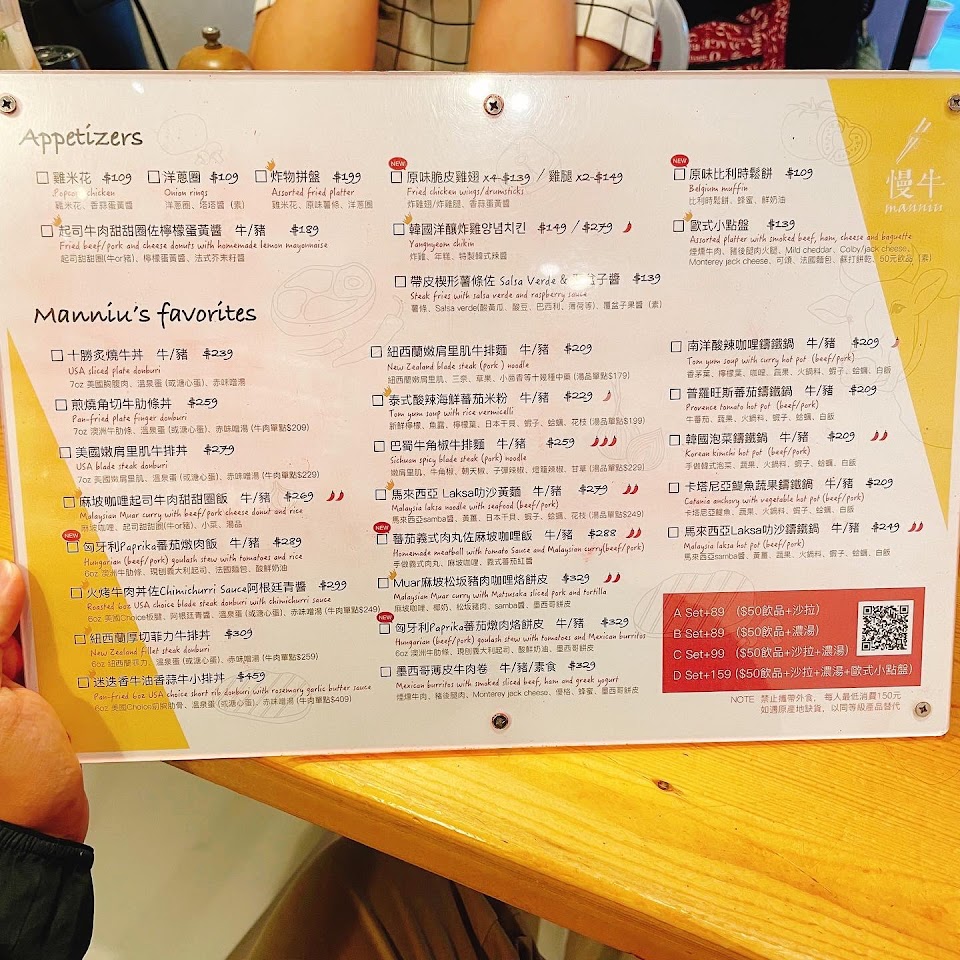 Appetizers
雞米花 $109
Popcorn chicken
雞米花、香蒜蛋黃醬
洋蔥圈 $109
Onion rings
洋蔥圈、塔塔醬（素）
炸物拼盤 $199
Assorted fried platter
雞米花、原味薯條、洋蔥圈
起司牛肉甜甜圈佐檸檬蛋黃醬 牛/豬 $189
Fried beef/pork and cheese donuts with homemade lemon mayonnaise
起司甜甜圈(牛or豬)、檸檬蛋黃醬、法式芥末籽醬
NEW
原味脆皮雞翅 x4 $139 / 雞腿 x2 $149
Fried chicken wings/drumsticks
炸雞翅/炸雞腿、香蒜蛋黃醬
韓國洋釀炸雞양념치킨 $149 / $279
Yangnyeom chikin
炸雞、年糕、特製韓式辣醬
帶皮楔形薯條佐 Salsa Verde & 盆子醬 $139
Steak fries with salsa verde and raspberry sauce
薯條、Salsa verde(酸黃瓜、酸豆、巴西利、薄荷等)、覆盆子果醬（素）
NEW
原味比利時鬆餅 $109
Belgium muffin
比利時鬆餅、蜂蜜、鮮奶油
歐式小點盤 $139
Assorted platter with smoked beef, ham, cheese and baguette
煙燻牛肉、豬後腿肉火腿、Mild cheddar、Colby/jack cheese、
Monterey jack cheese、可頌、法國麵包、蘇打餅乾、50元飲品（素）
慢牛
manniu
Manniu's favorites
十勝炙燒牛丼 牛/豬 $239
USA sliced plate donburi
7oz 美國胸腹肉、溫泉蛋(或溏心蛋)、赤味噌湯
煎燒角切牛肋條丼 $259
Pan-fried plate finger donburi
7oz 澳洲牛肋條、溫泉蛋 (或溏心蛋)、赤味噌湯 (牛肉單點$209)
美國嫩肩里肌牛排丼 $279
USA blade steak donburi
7oz 美國嫩肩里肌、溫泉蛋 (或溏心蛋)、赤味噌湯 (牛肉單點$229)
麻坡咖哩起司牛肉甜甜圈飯 牛/豬 $269
Malaysian Muar curry with beef/pork cheese donut and rice
麻坡咖哩、起司甜甜圈(牛or豬)、小菜、湯品
NEW
匈牙利Paprika蕃茄燉肉飯 牛/豬 $289
Hungarian (beef/pork) goulash stew with tomatoes and rice
6oz 澳洲牛肋條、現刨義大利起司、法國麵包、酸鮮奶油
火烤牛肉丼佐Chimichurri Sauce阿根廷青醬 $299
Roasted 6oz USA choice blade steak donburi with chimichurri sauce
6oz 美國Choice板腱、阿根廷青醬、溫泉蛋 (或溏心蛋)、赤味噌湯 (牛肉單點$249)
紐西蘭厚切菲力牛排丼 $309
New Zealand fillet steak donburi
6oz 紐西蘭菲力、溫泉蛋 (或溏心蛋)、赤味噌湯 (牛肉單點$259)
迷迭香牛油香蒜牛小排丼 $459
Pan-fried 6oz USA choice short rib donburi with rosemary garlic butter sauce
6oz 美國Choice前胸肋骨、溫泉蛋 (或溏心蛋)、赤味噌湯 (牛肉單點$409)
紐西蘭嫩肩里肌牛排麵 牛/豬 $209
New Zealand blade steak (pork) noodle
紐西蘭嫩肩里肌、三奈、草果、小茴香等十幾種中藥 (湯品單點$179)
泰式酸辣海鮮蕃茄米粉 牛/豬 $229
Tom yum soup with rice vermicelli
新鮮檸檬、魚露、檸檬葉、日本干貝、蝦子、蛤蠣、花枝 (湯品單點$199)
巴蜀牛角椒牛排麵 牛/豬 $259
Sichuan spicy blade steak (pork) noodle
嫩肩里肌、牛角椒、朝天椒、子彈辣椒、燈籠辣椒、甘草 (湯品單點$229)
馬來西亞 Laksa叻沙黃麵 牛/豬 $279
Malaysia laksa noodle with seafood (beef/pork)
馬來西亞samba醬、黃薑、日本干貝、蝦子、蛤蠣、花枝 (湯品單點$249)
NEW
蕃茄義式肉丸佐麻坡咖哩飯 牛/豬 $288
Homemade meatball with tomato Sauce and Malaysian curry(beef/pork)
手做義式肉丸、Muar麻坡咖哩、義式蕃茄紅醬
Muar麻坡松坂豬肉咖哩烙餅皮 $329
Malaysian Muar curry with Matsusaka sliced pork and tortilla
麻坡咖哩、椰奶、松坂豬肉、samba醬、墨西哥餅皮
NEW
匈牙利Paprika蕃茄燉肉烙餅皮 牛/豬 $329
Hungarian (beef/pork) goulash stew with tomatoes and Mexican burritos
6oz 澳洲牛肋條、現刨義大利起司、酸鮮奶油、墨西哥餅皮
墨西哥薄皮牛肉卷 牛/豬/素食 $329
Mexican burritos with smoked sliced beef, ham and greek yogurt
煙燻牛肉、豬後腿肉、Monterey jack cheese、優格、蜂蜜、墨西哥餅皮
南洋酸辣咖哩鑄鐵鍋 牛/豬 $209
Tom yum soup with curry hot pot (beef/pork)
香茅葉、檸檬葉、咖哩、蔬果、火鍋料、蝦子、蛤蠣、白飯
普羅旺斯蕃茄鑄鐵鍋 牛/豬 $209
Provence tomato hot pot (beef/pork)
牛蕃茄、蔬果、火鍋料、蝦子、蛤蠣、白飯
韓國泡菜鑄鐵鍋 牛/豬 $209
Korean kimchi hot pot (beef/pork)
手做韓式泡菜、蔬果、火鍋料、蝦子、蛤蠣、白飯
卡塔尼亞鯷魚蔬果鑄鐵鍋 牛/豬 $209
Catania anchovy with vegetable hot pot (beef/pork)
卡塔尼亞鯷魚、蔬果、火鍋料、蝦子、蛤蠣、白飯
馬來西亞Laksa叻沙鑄鐵鍋 牛/豬 $249
Malaysia laksa hot pot (beef/pork)
馬來西亞samba醬、黃薑、蔬果、火鍋料、蝦子、蛤蠣、白飯
A Set+89 （$50飲品+沙拉）
B Set+89 （$50飲品+濃湯）
C Set+99 （$50飲品+沙拉+濃湯）
D Set+159（$50飲品+沙拉+濃湯+歐式小點盤）
NOTE 禁止攜帶外食，每人最低消費150元
如遇原產地缺貨，以同等級產品替代